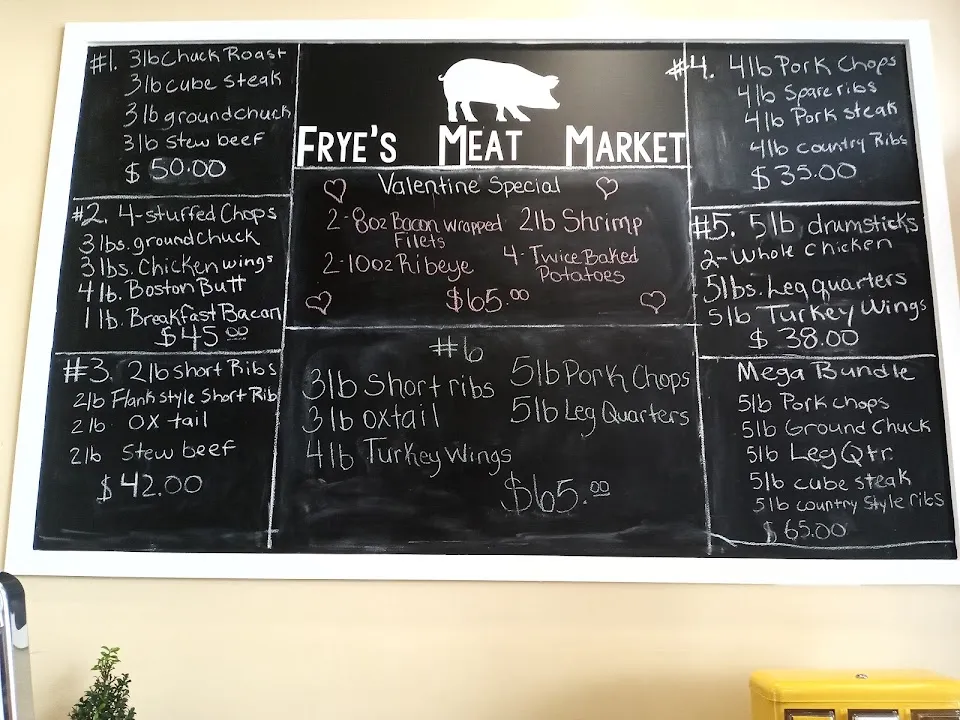 #1. 3lb Chuck Roast
3lb cube steak
3lb ground chuck
3lb stew beef
$ 50.00
#2. 4-stuffed Chops
3lbs. ground Chuck
3lbs. Chicken wings
4lb. Boston Butt
1lb. Breakfast Bacon
$45.00
#3. 2lb short Ribs
2lb Flank style Short Rib
2lb OX tail
2lb Stew beef
$42.00
FRYE'S MEAT MARKET
Valentine Special
2-8oz Bacon wrapped Filets
2-10oz Ribeye
2lb Shrimp
4-Twice Baked Potatoes
$65.00
#6
3lb Short ribs
3lb oxtail
4lb Turkey Wings
5lb Pork Chops
5lb Leg Quarters
$65.00
#4. 4lb Pork Chops
4lb Spare ribs
4lb Pork steak
4lb country Ribs
$35.00
#5. 5lb drumsticks
2-Whole Chicken
5lbs. Leg quarters
5lb Turkey Wings
$ 38.00
Mega Bundle
5lb Pork chops
5lb Ground Chuck
5lb Leg Qtr.
5lb cube steak
5lb country Style ribs
$65.00